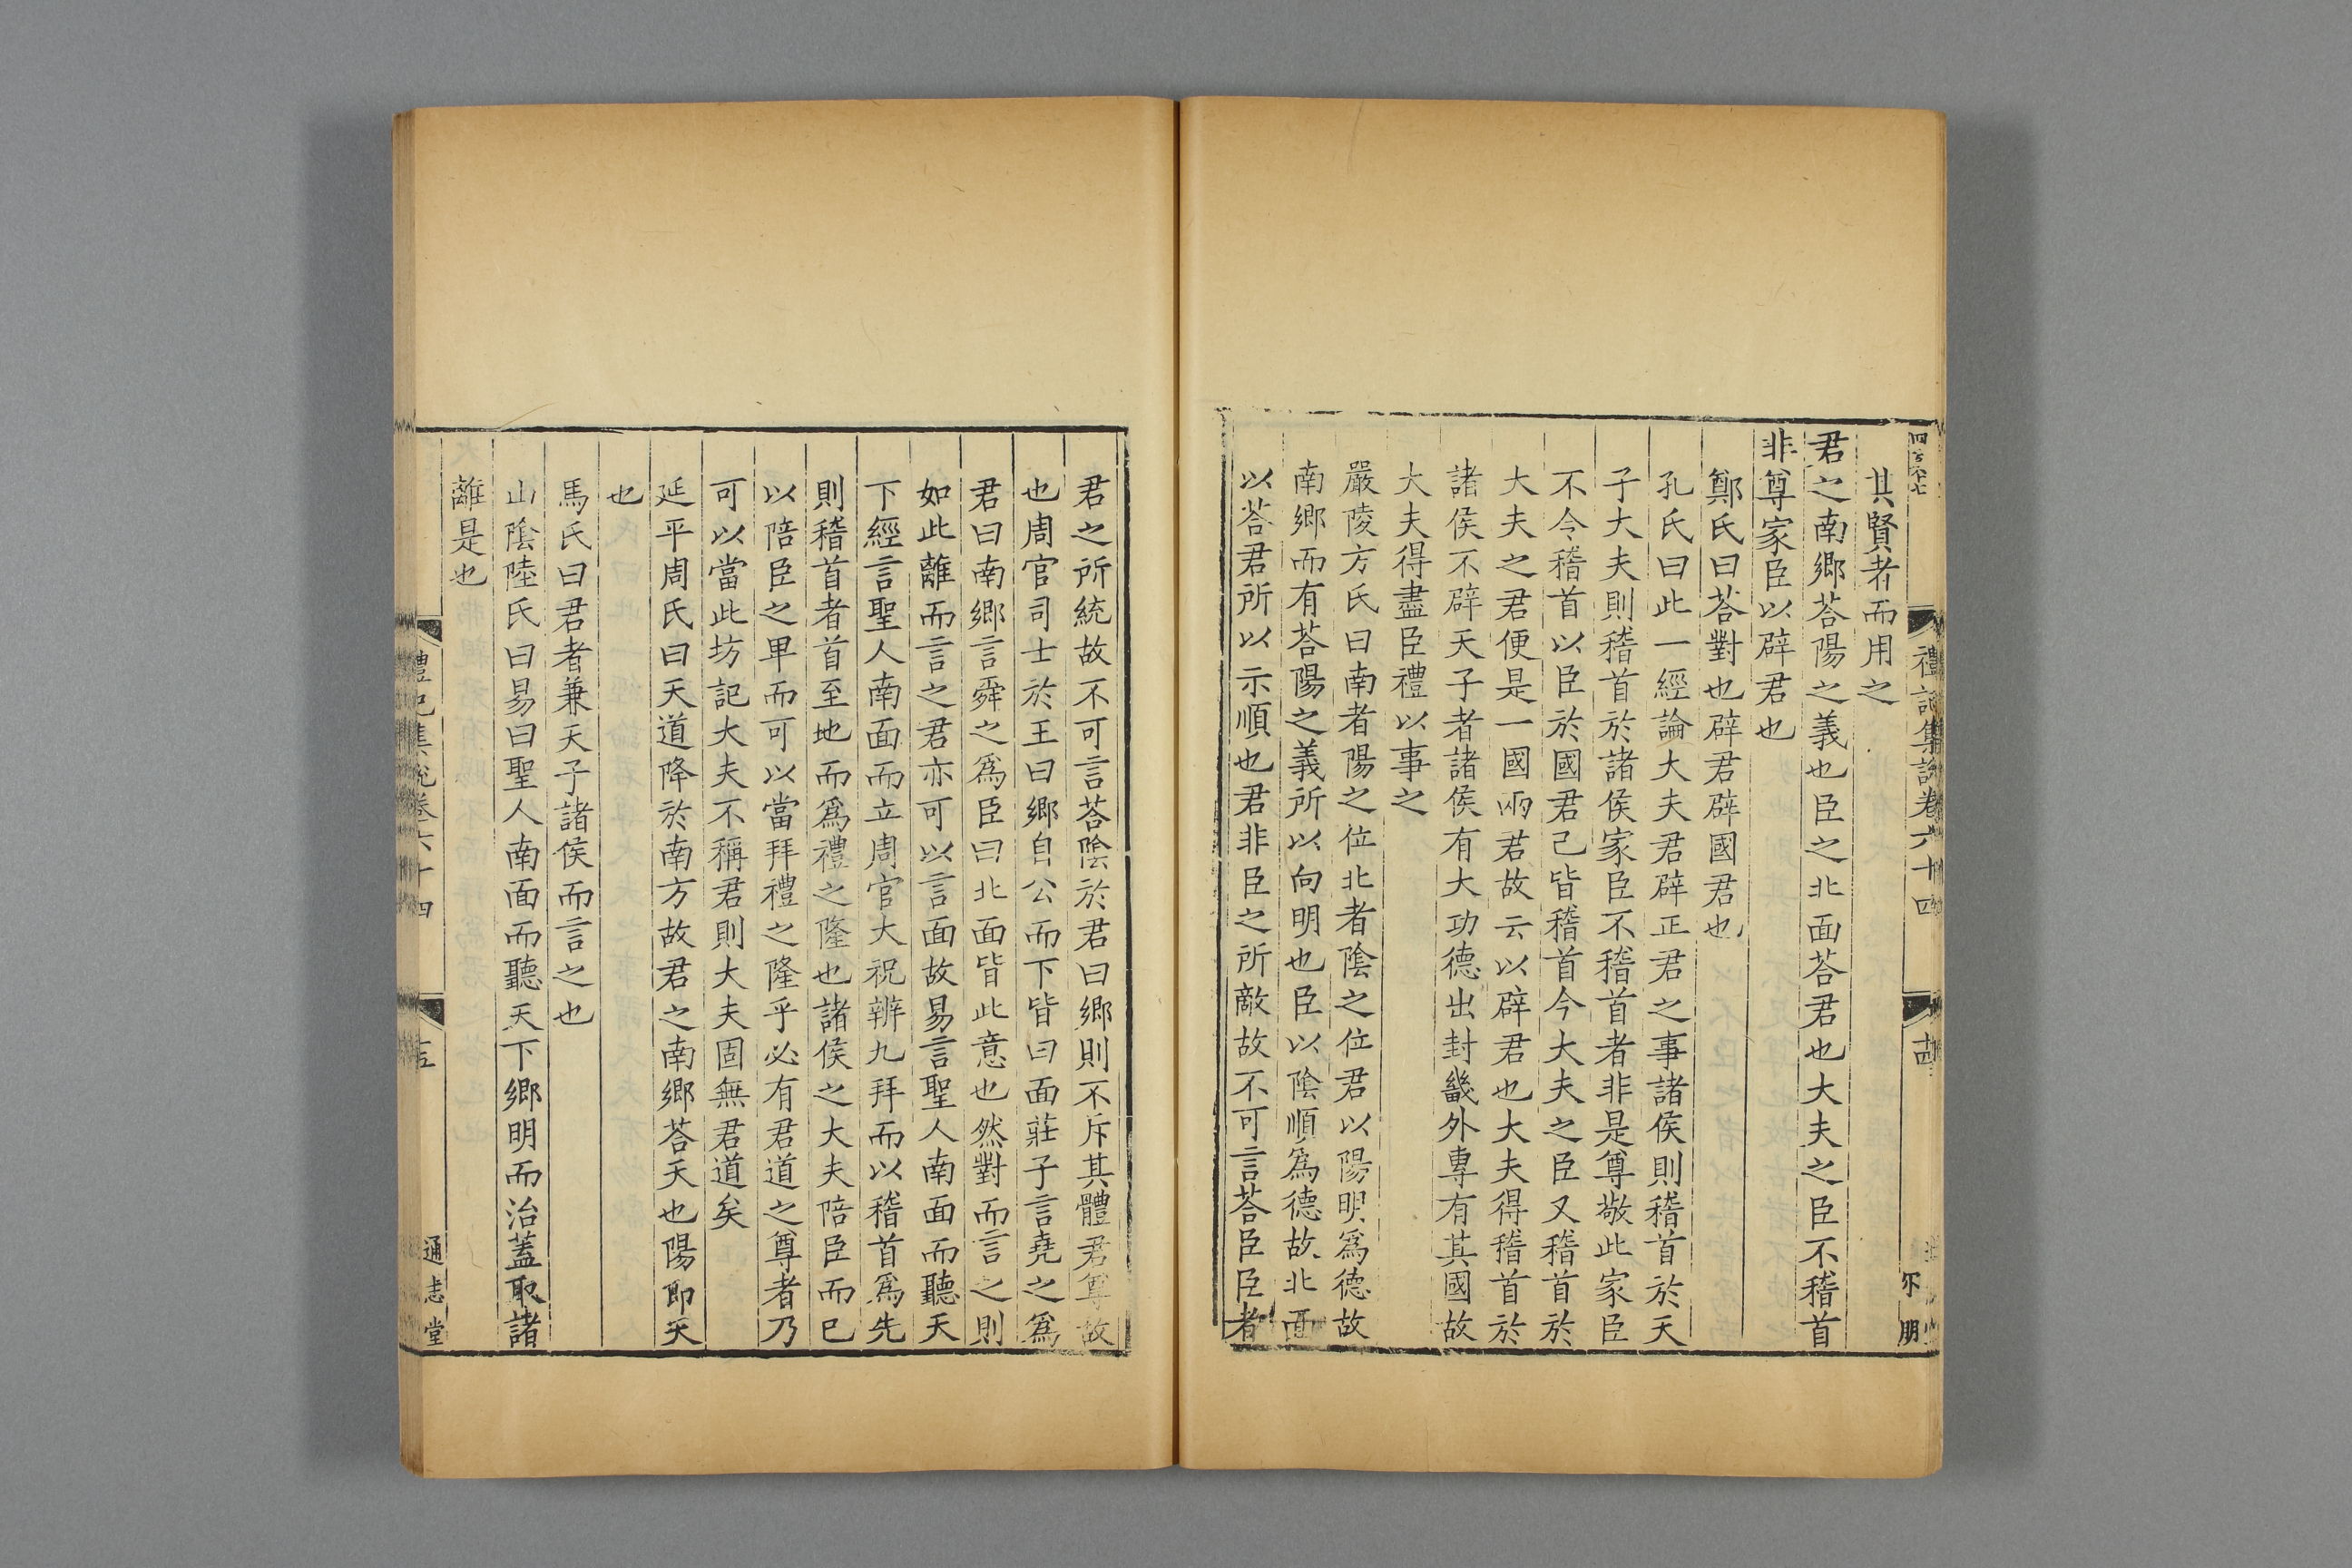 禮記集說卷六十四
其賢者而用之
君之南鄉荅陽之義也臣之北面荅君也大夫之臣不稽首
非尊家臣以辟君也
鄭氏曰荅對也辟君辟國君也
孔氏曰此一經論大夫君辟正君之事諸侯則稽首於天
子大夫則稽首於諸侯家臣不稽首者非是尊敬此家臣
不令稽首以臣於國君己皆稽首今大夫之臣又稽首於
大夫之君便是一國兩君故云以辟君也大夫得稽首於
諸侯不辟天子者諸侯有大功德出封畿外專有其國故
大夫得盡臣禮以事之
嚴陵方氏曰南者陽之位北者陰之位君以陽明爲德故
南鄉而有荅陽之義所以向明也臣以陰順爲德故北面
以荅君所以示順也君非臣之所敵故不可言荅臣臣者
君之所統故不可言荅陰於君曰鄉則不斥其體君尊故
也周官司士於王曰鄉自公而下皆曰面莊子言堯之爲
君曰南鄉言舜之爲臣曰北面皆此意也然對而言之則
如此離而言之君亦可以言面故易言聖人南面而聽天
下經言聖人南面而立周官大祝辨九拜而以稽首爲先
則稽首者首至地而爲禮之隆也諸侯之大夫陪臣而已
以陪臣之卑而可以當拜禮之隆乎必有君道之尊者乃
可以當此坊記大夫不稱君則大夫固無君道矣
延平周氏曰天道降於南方故君之南鄉荅天也陽卽天
也
馬氏曰君者兼天子諸侯而言之也
山陰陸氏曰易曰聖人南面而聽天下鄉明而治蓋取諸
離是也
禮記集說卷六十四
通志堂